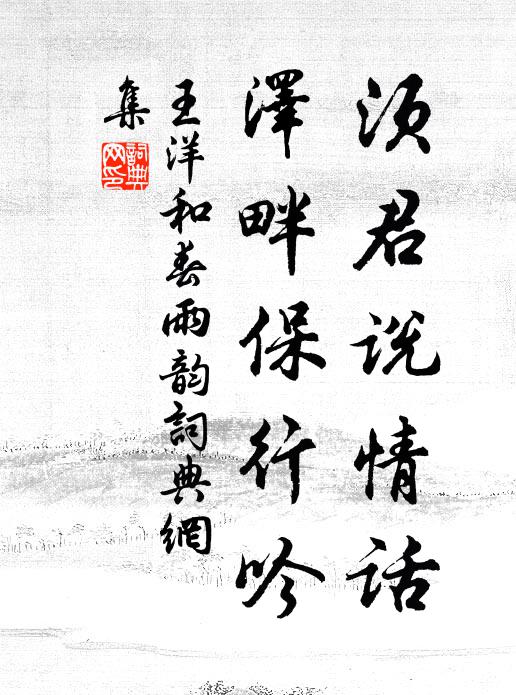 須君説情話
澤畔保行吟
王洋和春雨韵詞典網
集
詞典網印